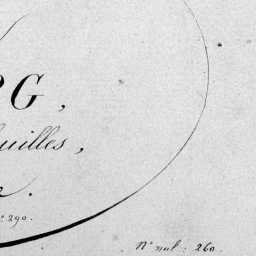 PG,
uilles,
290.
N° nul : 260.